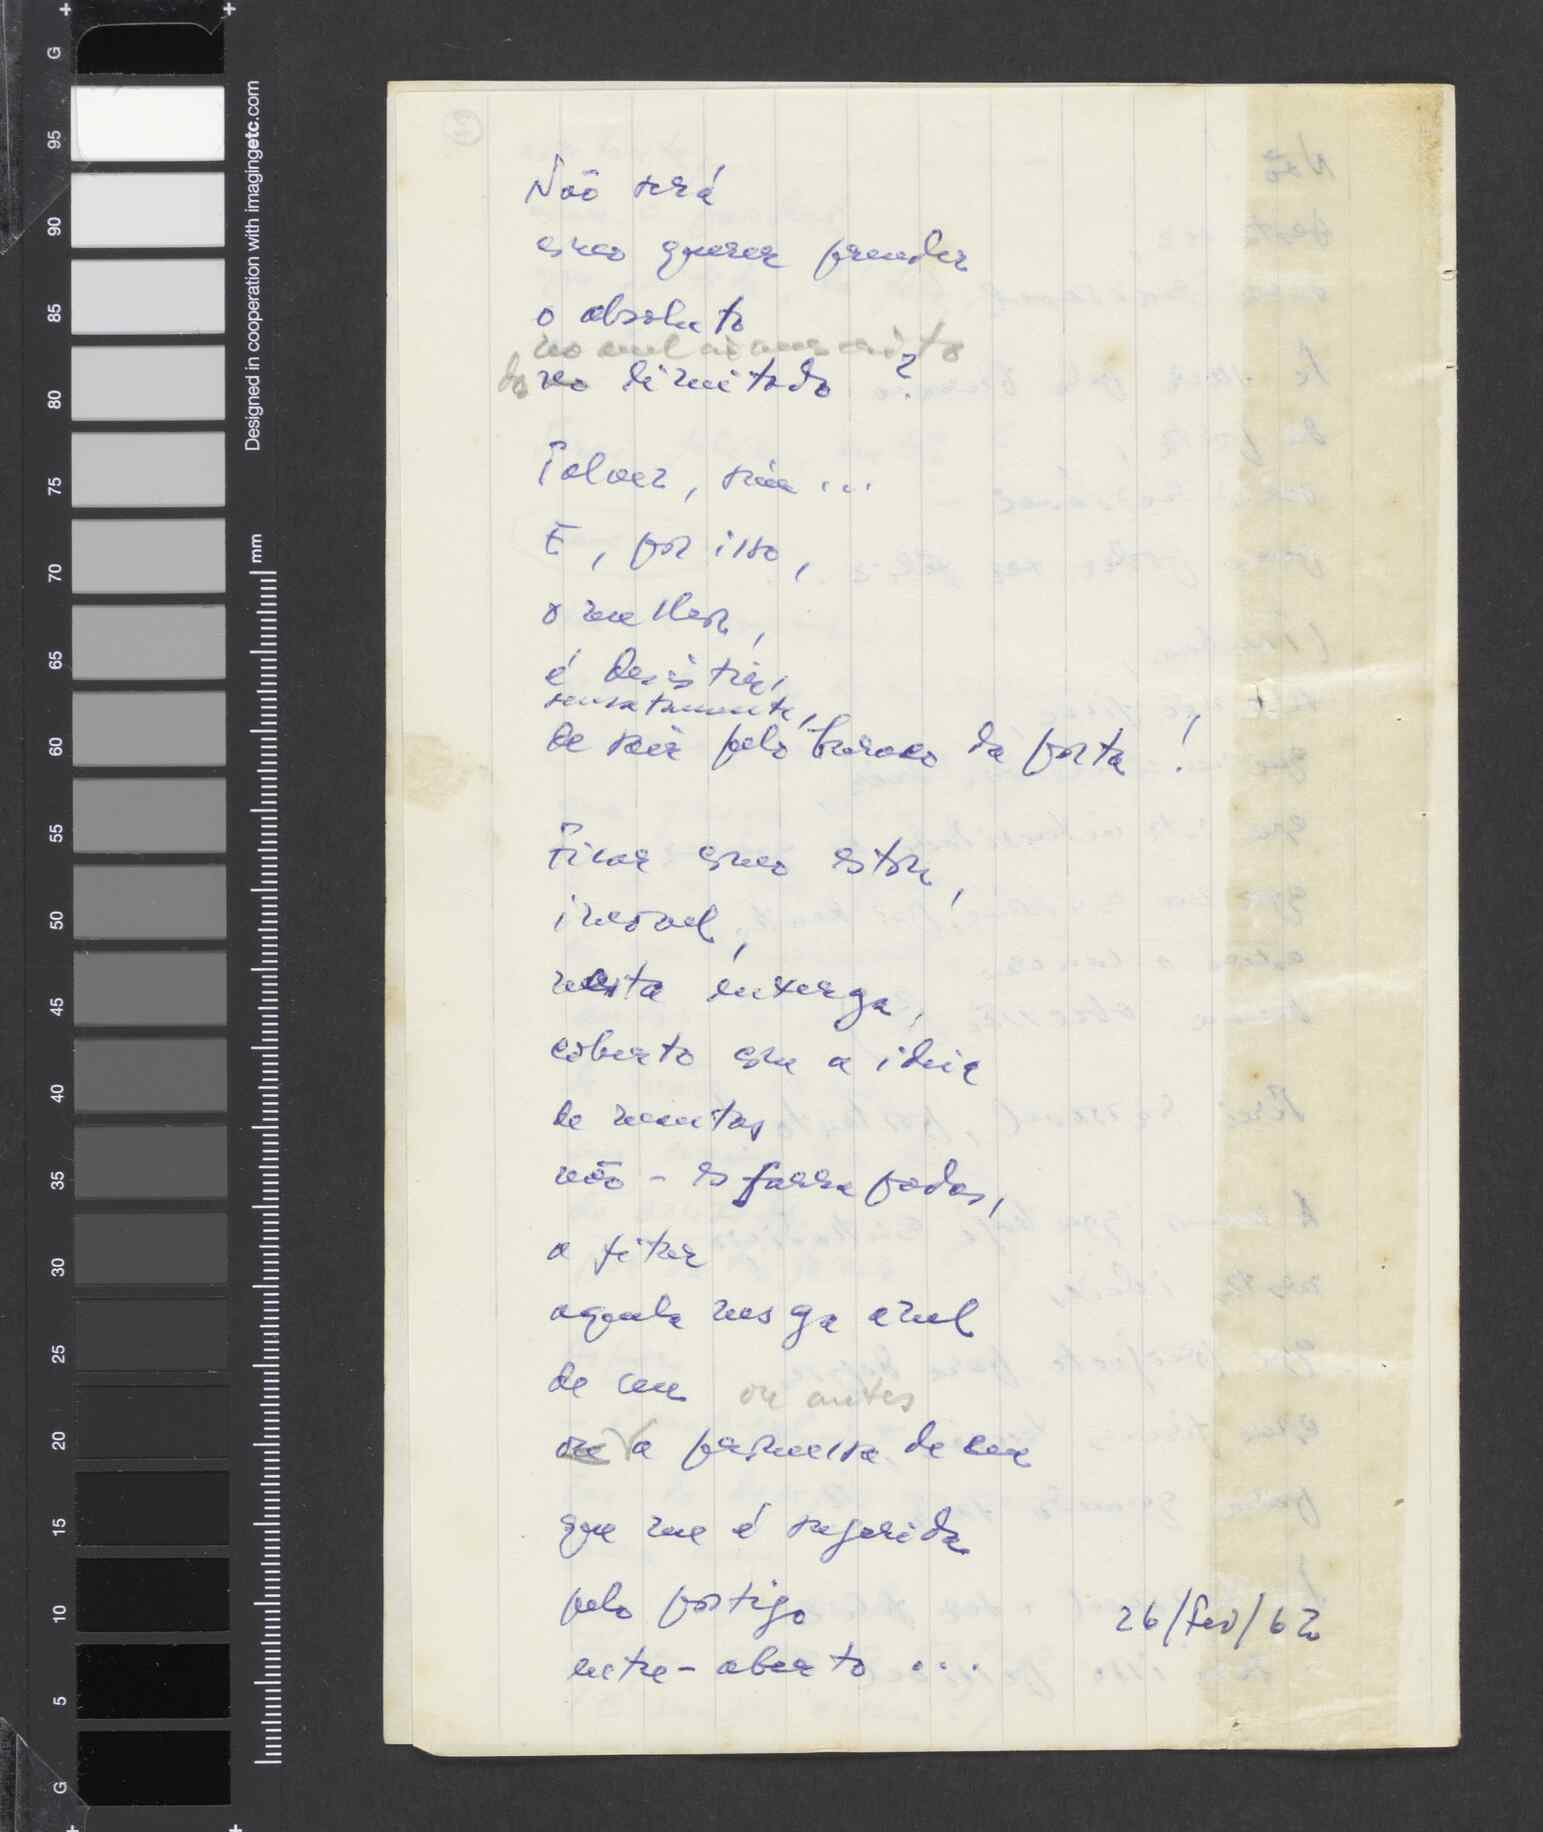 Não será
como querer prender
o absoluto
no
do no limitado ?
Talvez, sim ...
E, por isso,
o melhor,
é desistir,
sensatamente,
de sair pelo buraco da porta !
Ficar como estou,
imóvel,
nesta enxerga,
coberto com a ideia
de mantas
não - esfarrapadas,
a fitar
aquela nesga azul
de ceu
ou antes
ou a promessa de ceu
que me é sugerida
pelo postigo
entre-aberto ...
26/fev/62
Designed in cooperation with imagingetc.com
mm
G
95
90
85
80
75
70
65
60
55
50
45
40
35
30
25
20
15
10
5
G